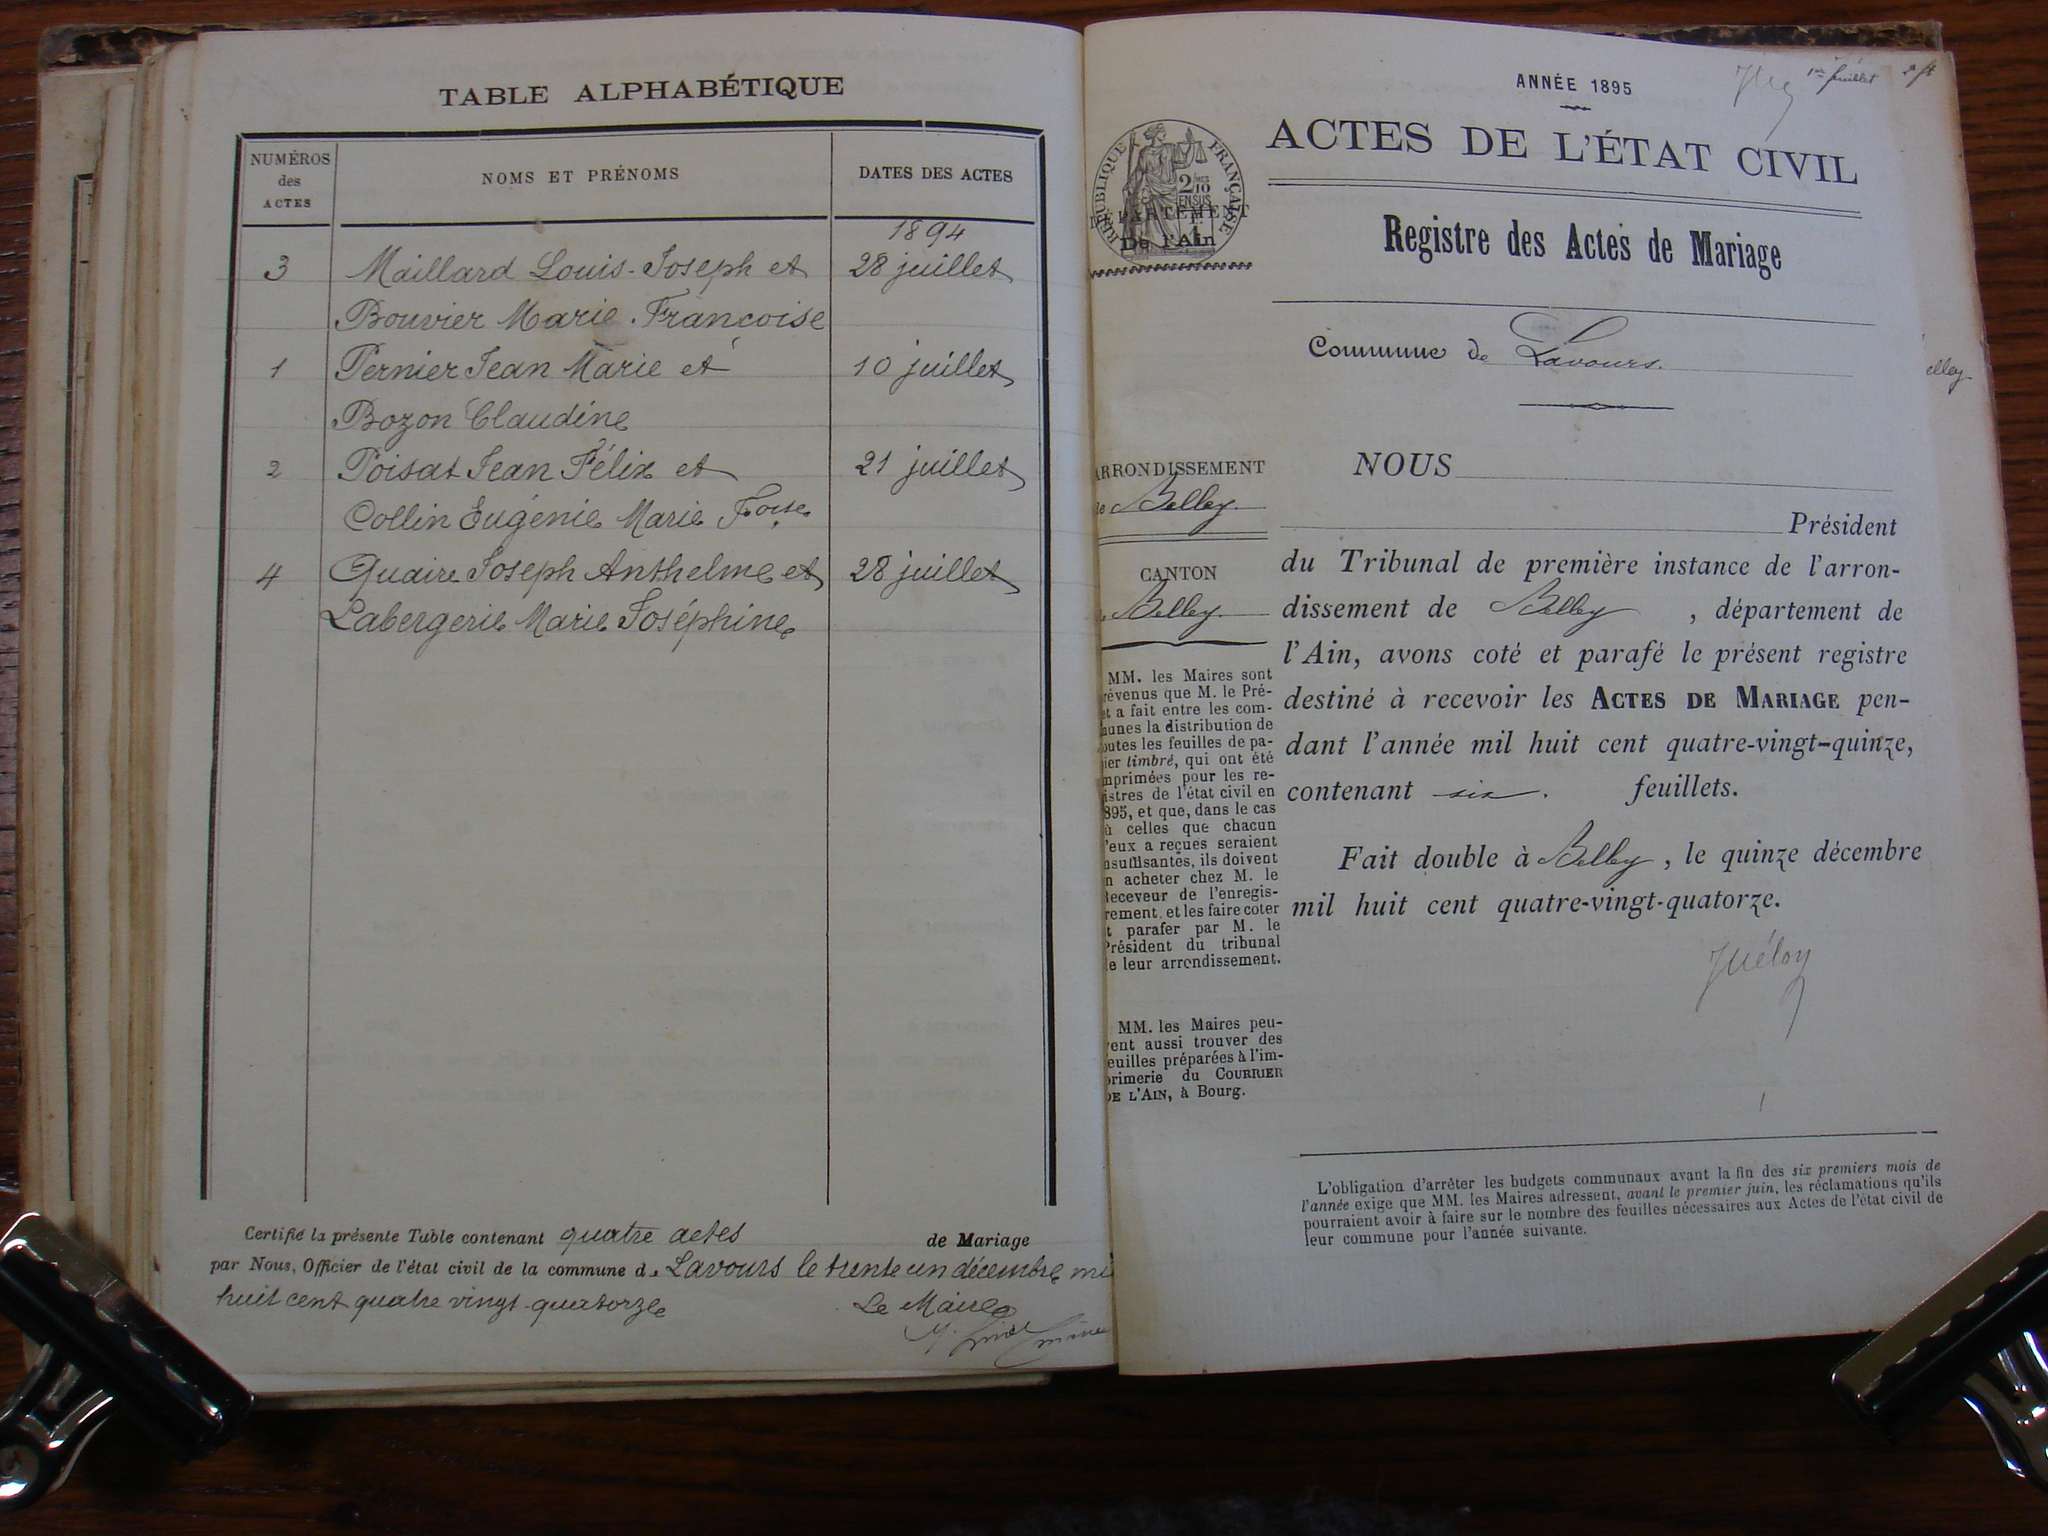 TABLE ALPHABÉTIQUE
NUMÉROS
des
ACTES
NOMS ET PRÉNOMS
DATES DES ACTES
1894
3 Maillard Louis-Joseph et 28 juillet
Bouvier Marie-Francoise
1 Pernier Jean Marie et 10 juillet
Bozon Claudine
2 Poisat Jean Félix et 21 juillet
Collin Eugénie Marie Foise
4 Quaire Joseph Anthelme et 28 juillet
Labergerie Marie Joséphine
Certifié la présente Table contenant quatre actes de Mariage
par Nous, Officier de l'état civil de la commune de Lavours le trente un décembre mi
huit cent quatre vingt-quatorze
Le Maire
1er feuillet
ANNÉE 1895
ACTES DE L'ÉTAT CIVIL
RÉPUBLIQUE FRANÇAISE
2/10
EN SUS
DÉPARTEMENT
De l'Ain
Registre des Actes de Mariage
Commune de Lavours.
elley
ARRONDISSEMENT
de Belley.
CANTON
Belley.
MM. les Maires sont
révenus que M. le Pré-
et a fait entre les com-
munes la distribution de
outes les feuilles de pa-
ier timbré, qui ont été
mprimées pour les re-
istres de l'état civil en
895, et que, dans le cas
ù celles que chacun
'eux a reçues seraient
nsuffisantes, ils doivent
n acheter chez M. le
Receveur de l'enregis-
rement, et les faire coter
t parafer par M. le
Président du tribunal
e leur arrondissement.
MM. les Maires peu-
vent aussi trouver des
euilles préparées à l'im-
primerie du COURRIER
DE L'AIN, à Bourg.
NOUS
Président
du Tribunal de première instance de l'arron-
dissement de Belley , département de
l'Ain, avons coté et parafé le présent registre
destiné à recevoir les ACTES DE MARIAGE pen-
dant l'année mil huit cent quatre-vingt-quinze,
contenant six. feuillets.
Fait double à Belley, le quinze décembre
mil huit cent quatre-vingt-quatorze.
L'obligation d'arrêter les budgets communaux avant la fin des six premiers mois de
l'année exige que MM. les Maires adressent, avant le premier juin, les réclamations qu'ils
pourraient avoir à faire sur le nombre des feuilles nécessaires aux Actes de l'état civil de
leur commune pour l'année suivante.